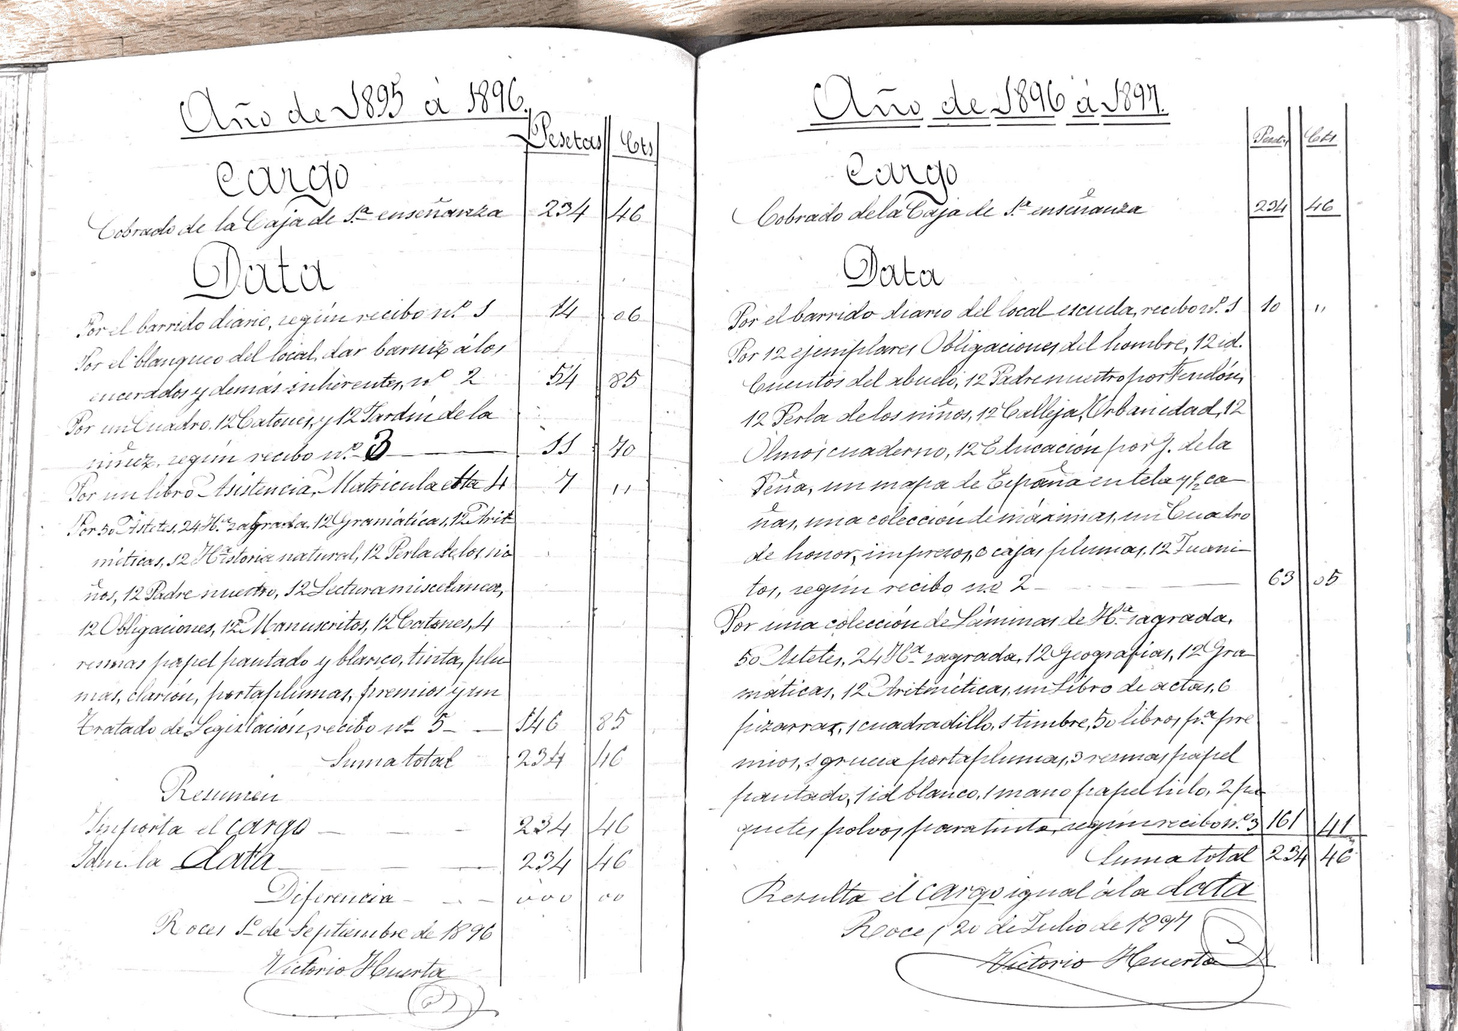 Año de 1895 á 1896.
Pesetas Cts
Cargo
Cobrado de la Caja de 1.ª enseñanza 234 46
Data
Por el barrido diario, según recibo n.º 1 14 06
Por el blanqueo del local, dar barniz á los
encerados y demás inherentes, n.º 2 54 85
Por un Cuadro, 12 Catones, y 12 Jardín de la
niñez, según recibo n.º 3 11 70
Por un libro Asistencia, Matricula etta 4 7 "
Por 50 Astetes, 24 H.ª sagrada, 12 Gramáticas, 12 Arit-
méticas, 12 Historia natural, 12 Perla de los ni-
ños, 12 Padre nuestro, 12 Lectura miscelanea,
12 Obligaciones, 12 Manuscritos, 12 Catones, 4
resmas papel pautado y blanco, tinta, plu-
mas, clarión, portaplumas, premios y un
tratado de Legislación, recibo nº 5 146 85
Suma total 234 46
Resumen
Importa el cargo 234 46
Idm. la data 234 46
Diferencia 000 00
Roces 1.º de Septiembre de 1896
Victorio Huerta
Año de 1896 á 1897.
Pesetas Cts
Cargo
Cobrado de la Caja de 1.ª enseñanza 234 46
Data
Por el barrido diario del local escuela, recibo nº. 1 10 "
Por 12 ejemplares Obligaciones del hombre, 12 id.
Cuentos del abuelo, 12 Padre nuestro por Fenelón,
12 Perla de los niños, 12 Calleja, Urbanidad, 12
Olmos cuaderno, 12 Educación por J. de la
Peña, un mapa de España en tela y ½ ca-
ñas, una colección de máximas, un Cuadro
de honor, impresos, 6 cajas plumas, 12 Juani-
tos, según recibo nº 2 63 05
Por una colección de Láminas de H.ª sagrada,
50 Astetes, 24 H.ª sagrada, 12 Geografías, 12 Gra-
máticas, 12 Aritméticas, un Libro de actas, 6
pizarras, 1 cuadradillo, 1 timbre, 50 libros p.ª pre-
mios, 1 gruesa portaplumas, 3 resmas papel
pautado, 1 id blanco, 1 mano papel hilo, 2 pa-
quetes polvos para tinta, según recibo n.º 3 161 41
Suma total 234 46
Resulta el cargo igual á la data
Roces 20 de Julio de 1897
Victorio Huerta